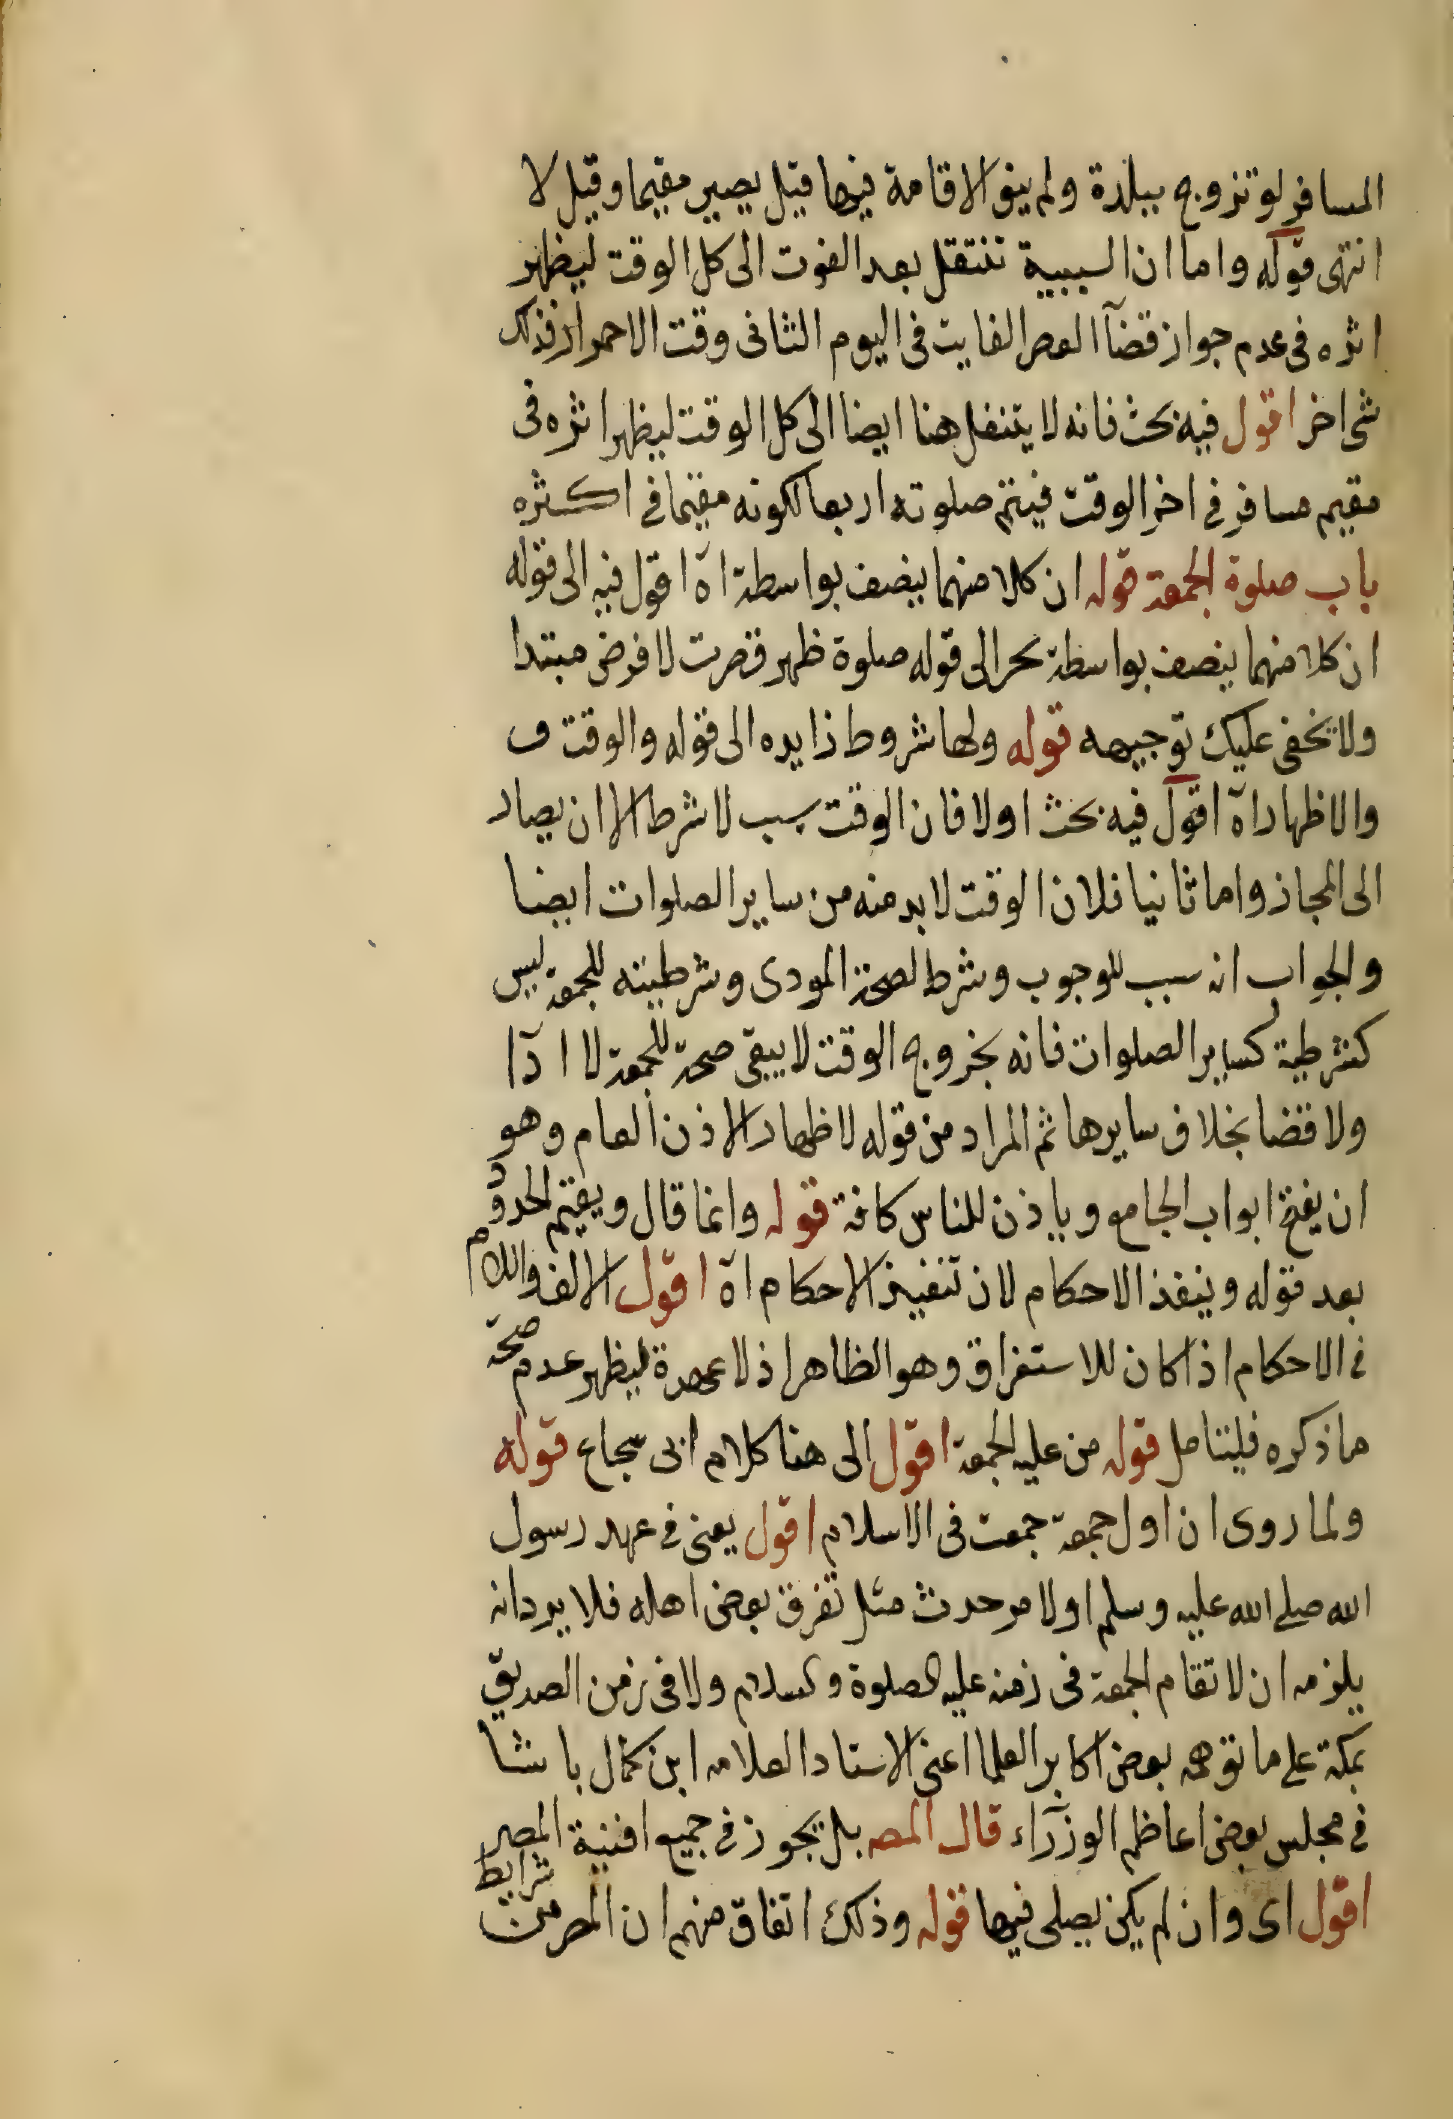 المسافر لو تزوج ببلدة ولم ينو الاقامة فيها قيل يصير مقيما وقيل لا
انتهى قوله واما ان السببية تنتقل بعد الفوت الى كل الوقت ليظهر
اثره فى عدم جواز قضآ العصر الفايت فى اليوم الثانى وقت الاحمرار فذلك
شى اخر اقول فيه بحث فانه لا يتنفل هنا ايضا الى كل الوقت ليظهر اثره فى
مقيم مسافر فى اخر الوقت فيتم صلوته اربعا لكونه مقيما فى اكثره
باب صلوة الجمعة قوله ان كلا منهما ينصف بواسطة اه اقول فيه الى قوله
ان كلا منهما ينصف بواسطة بحر الى قوله صلوة ظهر قصرت لا فرض مبتدا
ولا يخفى عليك توجيهه قوله ولها شروط زايده الى قوله والوقت ف
والاظهار اه اقول فيه بحث اولا فان الوقت سبب لا شرط الا ان يصار
الى المجاز واما ثانيا فلان الوقت لا بد منه من ساير الصلوات ايضا
والجواب انه سبب للوجوب وشرط لصحة المودى وشرطيته للجمعة ليس
كشرطية لساير الصلوات فانه بخروج الوقت لا يبقى صحة للجمعة لا ادآ
ولا قضا بخلاف سايرها ثم المراد من قوله لاظهار الاذن العام وهو
ان يفتح ابواب الجامع وياذن للناس كافة قوله وانما قال ويقيم الحدود
بعد قوله وينفذ الاحكام لان تنفيذ الاحكام اه اقول الالف واللام
فى الاحكام اذا كان للاستغراق وهو الظاهر اذ لا عهدة ليظهر عدم صحة
ما ذكره فليتامل قوله من عليه الجمعة اقول الى هنا كلام ابى شجاع قوله
ولما روى ان اول جمعة جمعت فى الاسلام اقول يعنى فى عهد رسول
الله صلى الله عليه وسلم اولا مر حدث مثل تفرق بعض اهله فلا يرد انه
يلزمه ان لا تقام الجمعة فى زمنه عليه الصلوة والسلام ولا فى زمن الصديق
بمكة على ما توهمه بعض اكابر العلما اعنى الاستاد العلامه ابن كمال باشا
فى مجلس بعض اعاظم الوزرآء قال المصـ بل يجوز فى جميع افنية المصر
اقول اى وان لم يكن يصلى فيها قوله وذلك اتفاق منهم ان المصر من شرايط